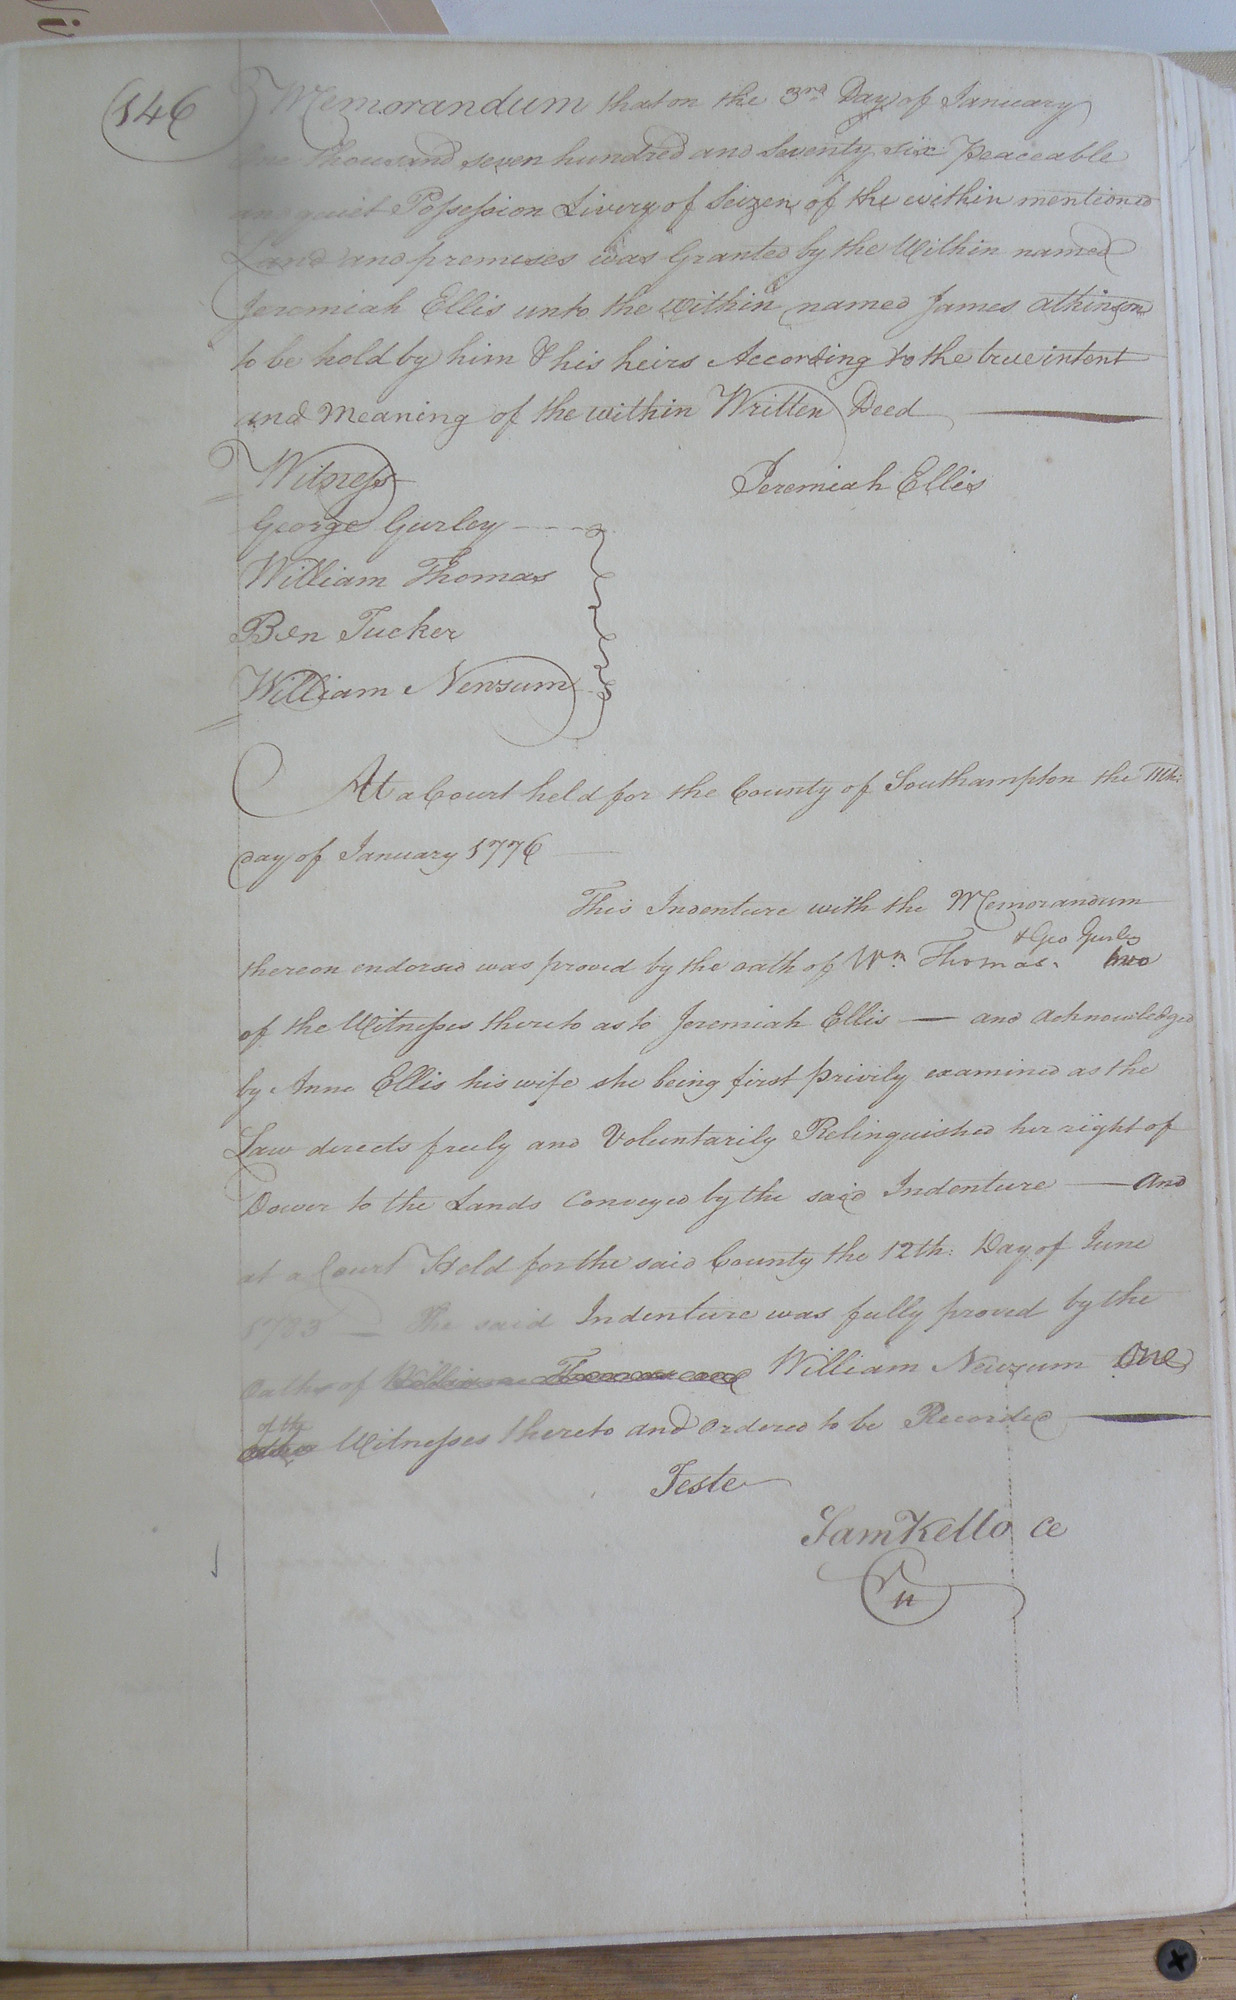 146
Memorandum that on the 3rd Day of January
One thousand seven hundred and Seventy six Peaceable
and quiet Possession Livery of Seizen of the within mentioned
Land and premises was Granted by the Within named
Jeremiah Ellis unto the within named James Atkinson
to be hold by him & his heirs According to the true intent
and Meaning of the within Written Deed
Witness
Jeremiah Ellis
George Gurley
William Thomas
Ben Tucker
William Newsum
At a Court held for the County of Southampton the 11th:
day of January 1776
This Indenture with the Memorandum
& Geo Gurley
thereon endorsed was proved by the oath of Wm Thomas. two
of the Witnesses thereto as to Jeremiah Ellis — and acknowledged
by Anne Ellis his wife she being first privily examined as the
Law directs freely and Voluntarily Relinquished her right of
Dower to the Lands Conveyed by the said Indenture — and
at a Court Held for the said County the 12th: Day of June
1783 — The said Indenture was fully proved by the
Oaths of William Thomas and William Newsum One
of the
other Witnesses thereto and Ordered to be Recorded
Teste
Sam Kello CC